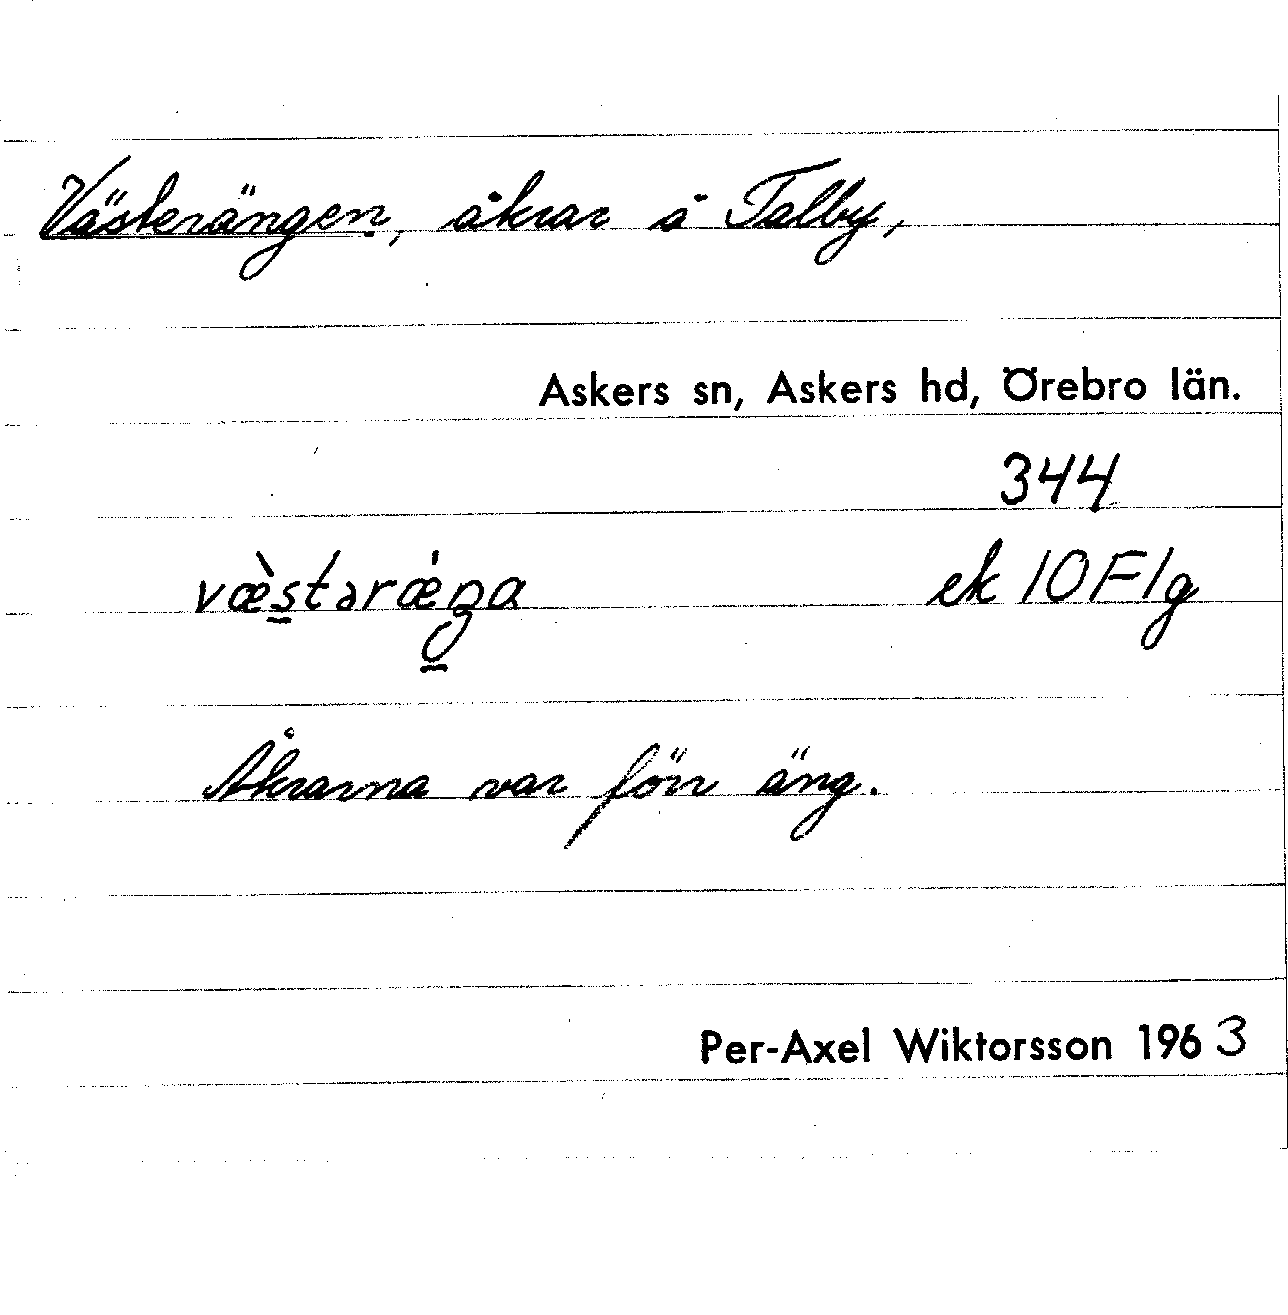 Västerängen, åkrar å Talby,
Askers sn, Askers hd, Örebro län.
344
væ̀stərǽŋa ek 10F1g
Åkrarna var förr äng.
Per-Axel Wiktorsson 1963